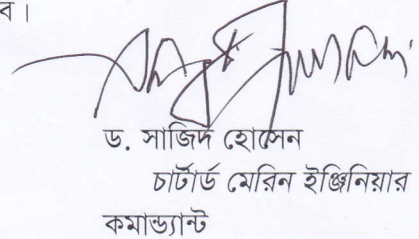 ব।
ড. সাজিদ হোসেন
চার্টার্ড মেরিন ইঞ্জিনিয়ার
কমান্ড্যান্ট